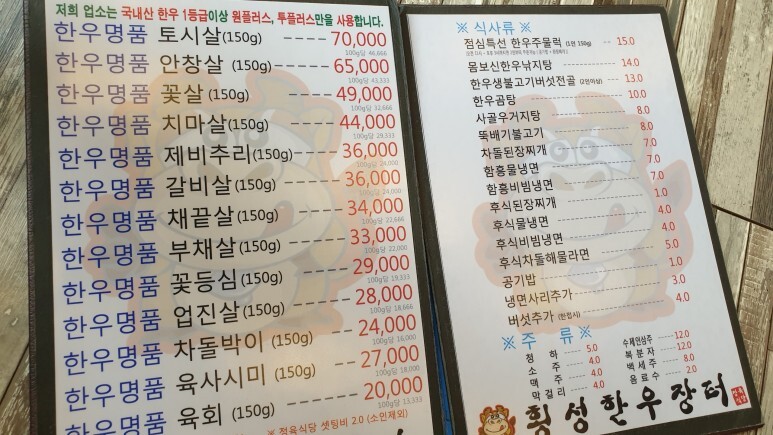 저희 업소는 국내산 한우 1등급이상 원플러스, 투플러스만을 사용합니다.
한우명품 토시살(150g) ---- 70,000
100g당 46,666
한우명품 안창살 (150g) ---- 65,000
100g당 43,333
한우명품 꽃살 (150g) ---- 49,000
100g당 32,666
한우명품 치마살(150g) ---- 44,000
100g당 29,333
한우명품 제비추리(150g) ---- 36,000
100g당 24,000
한우명품 갈비살(150g) ---- 36,000
100g당 24,000
한우명품 채끝살 (150g) ---- 34,000
100g당 22,666
한우명품 부채살 (150g) ---- 33,000
100g당 22,000
한우명품 꽃등심 (150g) ---- 29,000
100g당 19,333
한우명품 업진살 (150g) ---- 28,000
100g당 18,666
한우명품 차돌박이 (150g) ---- 24,000
100g당 16,000
한우명품 육사시미 (150g) ---- 27,000
100g당 18,000
한우명품 육회 (150g) ---- 20,000
100g당 13,333
※ 정육식당 셋팅비 2.0 (소인제외)
※ 식사류 ※
점심특선 한우주물럭 (1인 150g) ---- 15.0
몸보신한우낙지탕 ---- 14.0
한우생불고기버섯전골 (2인이상) ---- 13.0
한우곰탕 ---- 10.0
사골우거지탕 ---- 8.0
뚝배기불고기 ---- 8.0
차돌된장찌개 ---- 7.0
함흥물냉면 ---- 7.0
함흥비빔냉면 ---- 7.0
후식된장찌개 ---- 1.0
후식물냉면 ---- 4.0
후식비빔냉면 ---- 4.0
후식차돌해물라면 ---- 5.0
공기밥 ---- 1.0
냉면사리추가 ---- 3.0
버섯추가 (한접시) ---- 4.0
※ 주 류 ※
청 하 ---- 5.0
소 주 ---- 4.0
맥 주 ---- 4.0
막걸리 ---- 4.0
수제인삼주 ---- 12.0
복분자 ---- 12.0
백세주 ---- 8.0
음료수 ---- 2.0
횡성한우장터